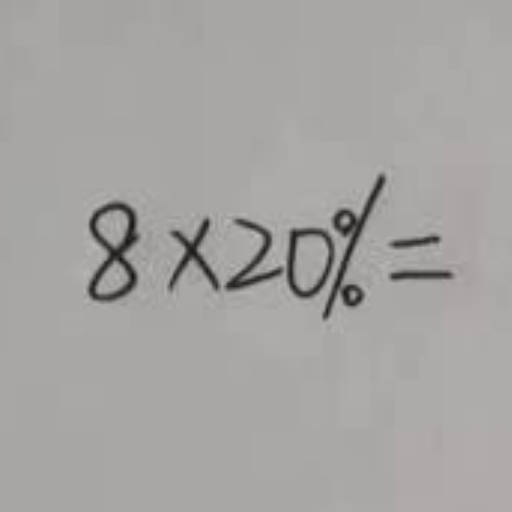 8×20%=